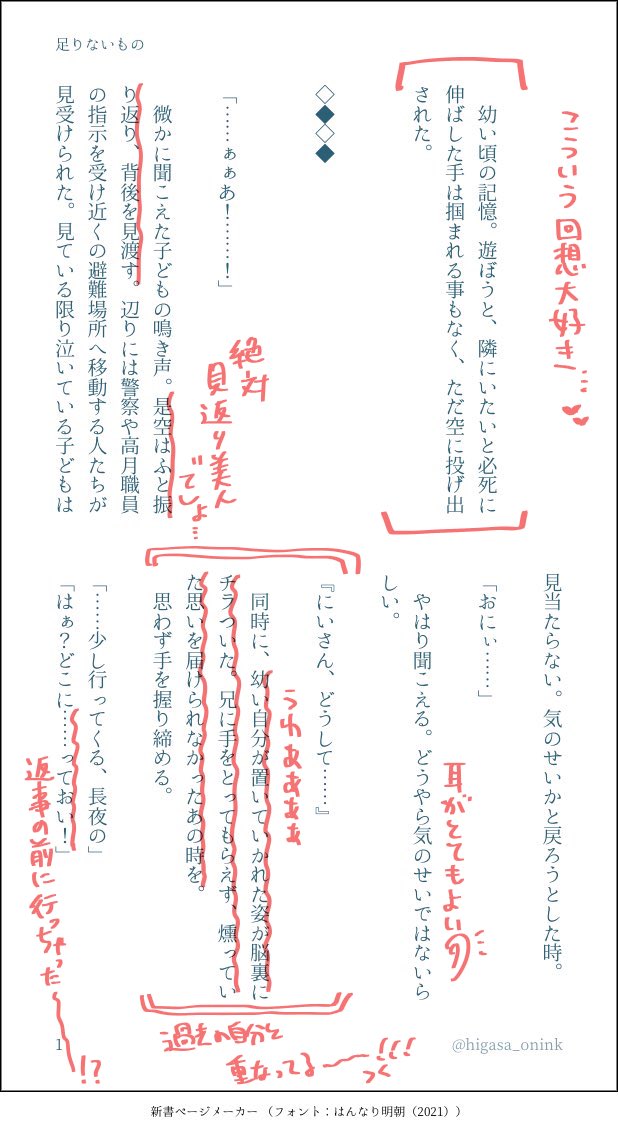 足りないもの
幼い頃の記憶。遊ぼうと、隣にいたいと必死に
伸ばした手は掴まれる事もなく、ただ空に投げ出
された。
こういう回想大好き…
◇◆◇◆
「……ぁぁあ!……!」
微かに聞こえた子どもの鳴き声。是空はふと振
り返り、背後を見渡す。辺りには警察や高月職員
の指示を受け近くの避難場所へ移動する人たちが
見受けられた。見ている限り泣いている子どもは
絶対
見返り美人
でしょ…
見当たらない。気のせいかと戻ろうとした時。
「おにぃ……」
やはり聞こえる。どうやら気のせいではないら
しい。
耳がとてもよい
『にいさん、どうして……』
同時に、幼い自分が置いていかれた姿が脳裏に
チラついた。兄に手をとってもらえず、燻ってい
た思いを届けられなかったあの時を。
思わず手を握り締める。
うわぁぁぁぁ
過去の自分と
重なってる〜!!!
つく
「……少し行ってくる、長夜の」
「はぁ?どこに……っておい!」
返事の前に行っちゃった〜!?
1
@higasa_onink
新書ページメーカー(フォント:はんなり明朝(2021))